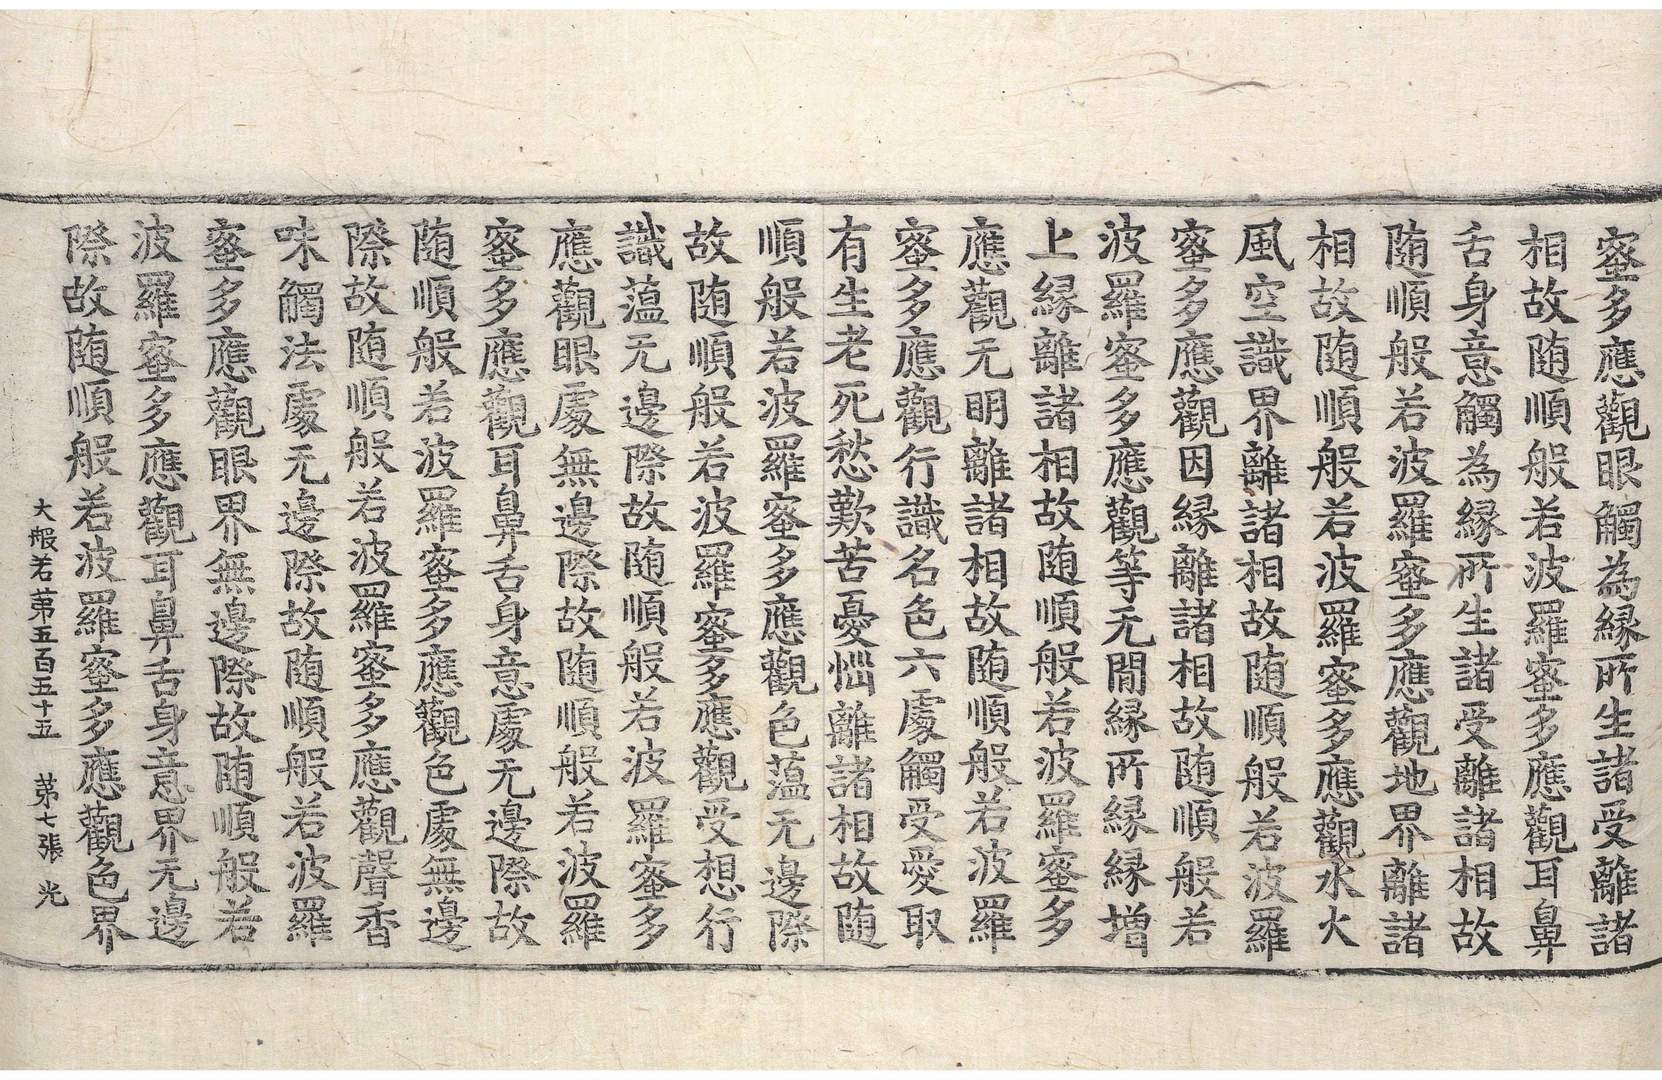 蜜多應觀眼觸為緣所生諸受離諸
相故随順般若波羅蜜多應觀耳鼻
舌身意觸為緣所生諸受離諸相故
随順般若波羅蜜多應觀地界離諸
相故随順般若波羅蜜多應觀水火
風空識界離諸相故随順般若波羅
蜜多應觀因緣離諸相故随順般若
波羅蜜多應觀等无間緣所緣緣增
上緣離諸相故随順般若波羅蜜多
應觀无明離諸相故随順般若波羅
蜜多應觀行識名色六處觸受愛取
有生老死愁歎苦憂惱離諸相故随
順般若波羅蜜多應觀色薀无邊際
故随順般若波羅蜜多應觀受想行
識薀无邊際故随順般若波羅蜜多
應觀眼處無邊際故随順般若波羅
蜜多應觀耳鼻舌身意處无邊際故
随順般若波羅蜜多應觀色處無邊
際故随順般若波羅蜜多應觀聲香
味觸法處无邊際故随順般若波羅
蜜多應觀眼界無邊際故随順般若
波羅蜜多應觀耳鼻舌身意界无邊
際故随順般若波羅蜜多應觀色界
大般若第五百五十五 第七張 光